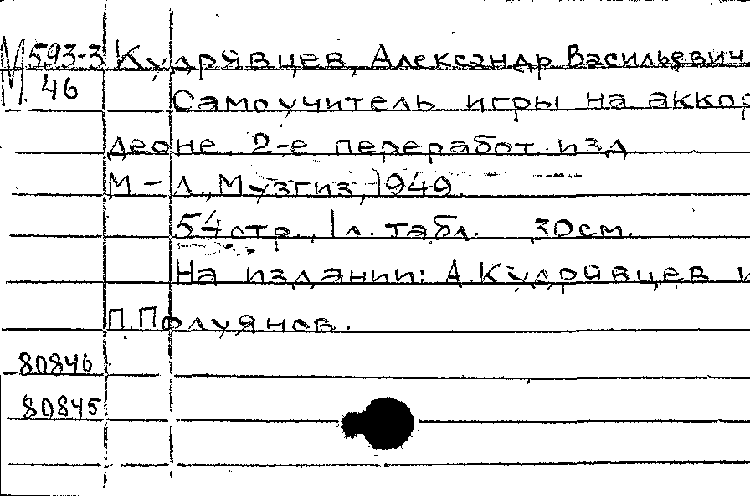 М 593-3 Кудрявцев, Александр Васильевич
46 Самоучитель игры на аккор
деоне. 2-е переработ. изд
М-Л., Музгиз, 1949.
54 стр., 1 л. табл. 30см.
На издании: А. Кудрявцев и
П. Полуянов.
80846
80845